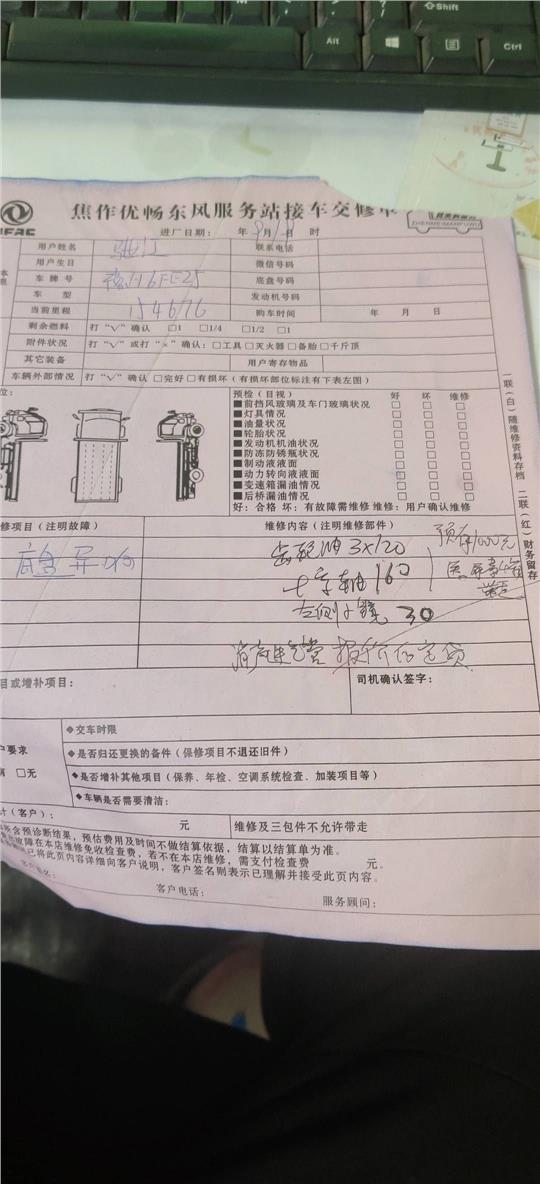 Shift
Alt
Ctrl
焦作优畅东风服务站接车交修单
ZHENMEIMANFUWU
进厂日期： 年 9/ 日 时
用户姓名 联系电话
用户生日 微信号码
车牌号 底盘号码
车型 154676 发动机号码
当前里程 购车时间 年 月 日
剩余燃料 打“√”确认 □1 □1/4 □1/2 □1
附件状况 打“√”或打“×”确认：□工具□灭火器□备胎□千斤顶
其它装备 用户寄存物品
车辆外部情况 打“√”确认□完好□有损坏（有损坏部位标注有下表左图）
位：
预检（目视） 好 坏 维修
■前挡风玻璃及车门玻璃状况 □ □ □
■灯具情况 □ □ □
■油量状况 □ □ □
■轮胎状况 □ □ □
■发动机机油状况 □ □ □
■防冻防锈瓶状况 □ □ □
■制动液液面 □ □ □
■动力转向液液面 □ □ □
■变速箱漏油情况 □ □ □
■后桥漏油情况 □ □ □
好：合格 坏：有故障需维修 维修：用户确认维修
修项目（注明故障） 维修内容（注明维修部件）
底盘异响
齿轮油 3X120
预存1000元
十字轴 160
左侧小镜 30
报价
目或增补项目： 司机确认签字：
◆交车时限
户要求 ◆是否归还更换的备件（保修项目不退还旧件）
□无 ◆是否增补其他项目（保养、年检、空调系统检查、加装项目等）
◆车辆是否需要清洁：
计（客户）： 元 维修及三包件不允许带走
所含预诊断结果，预估费用及时间不做结算依据，结算以结算单为准。
故障在本店维修免收检查费，若不在本店维修，需支付检查费 元。
已将此页内容详细向客户说明，客户签名则表示已理解并接受此页内容。
客户签名： 客户电话： 服务顾问：
一联（白）随维修资料存档 二联（红）财务留存